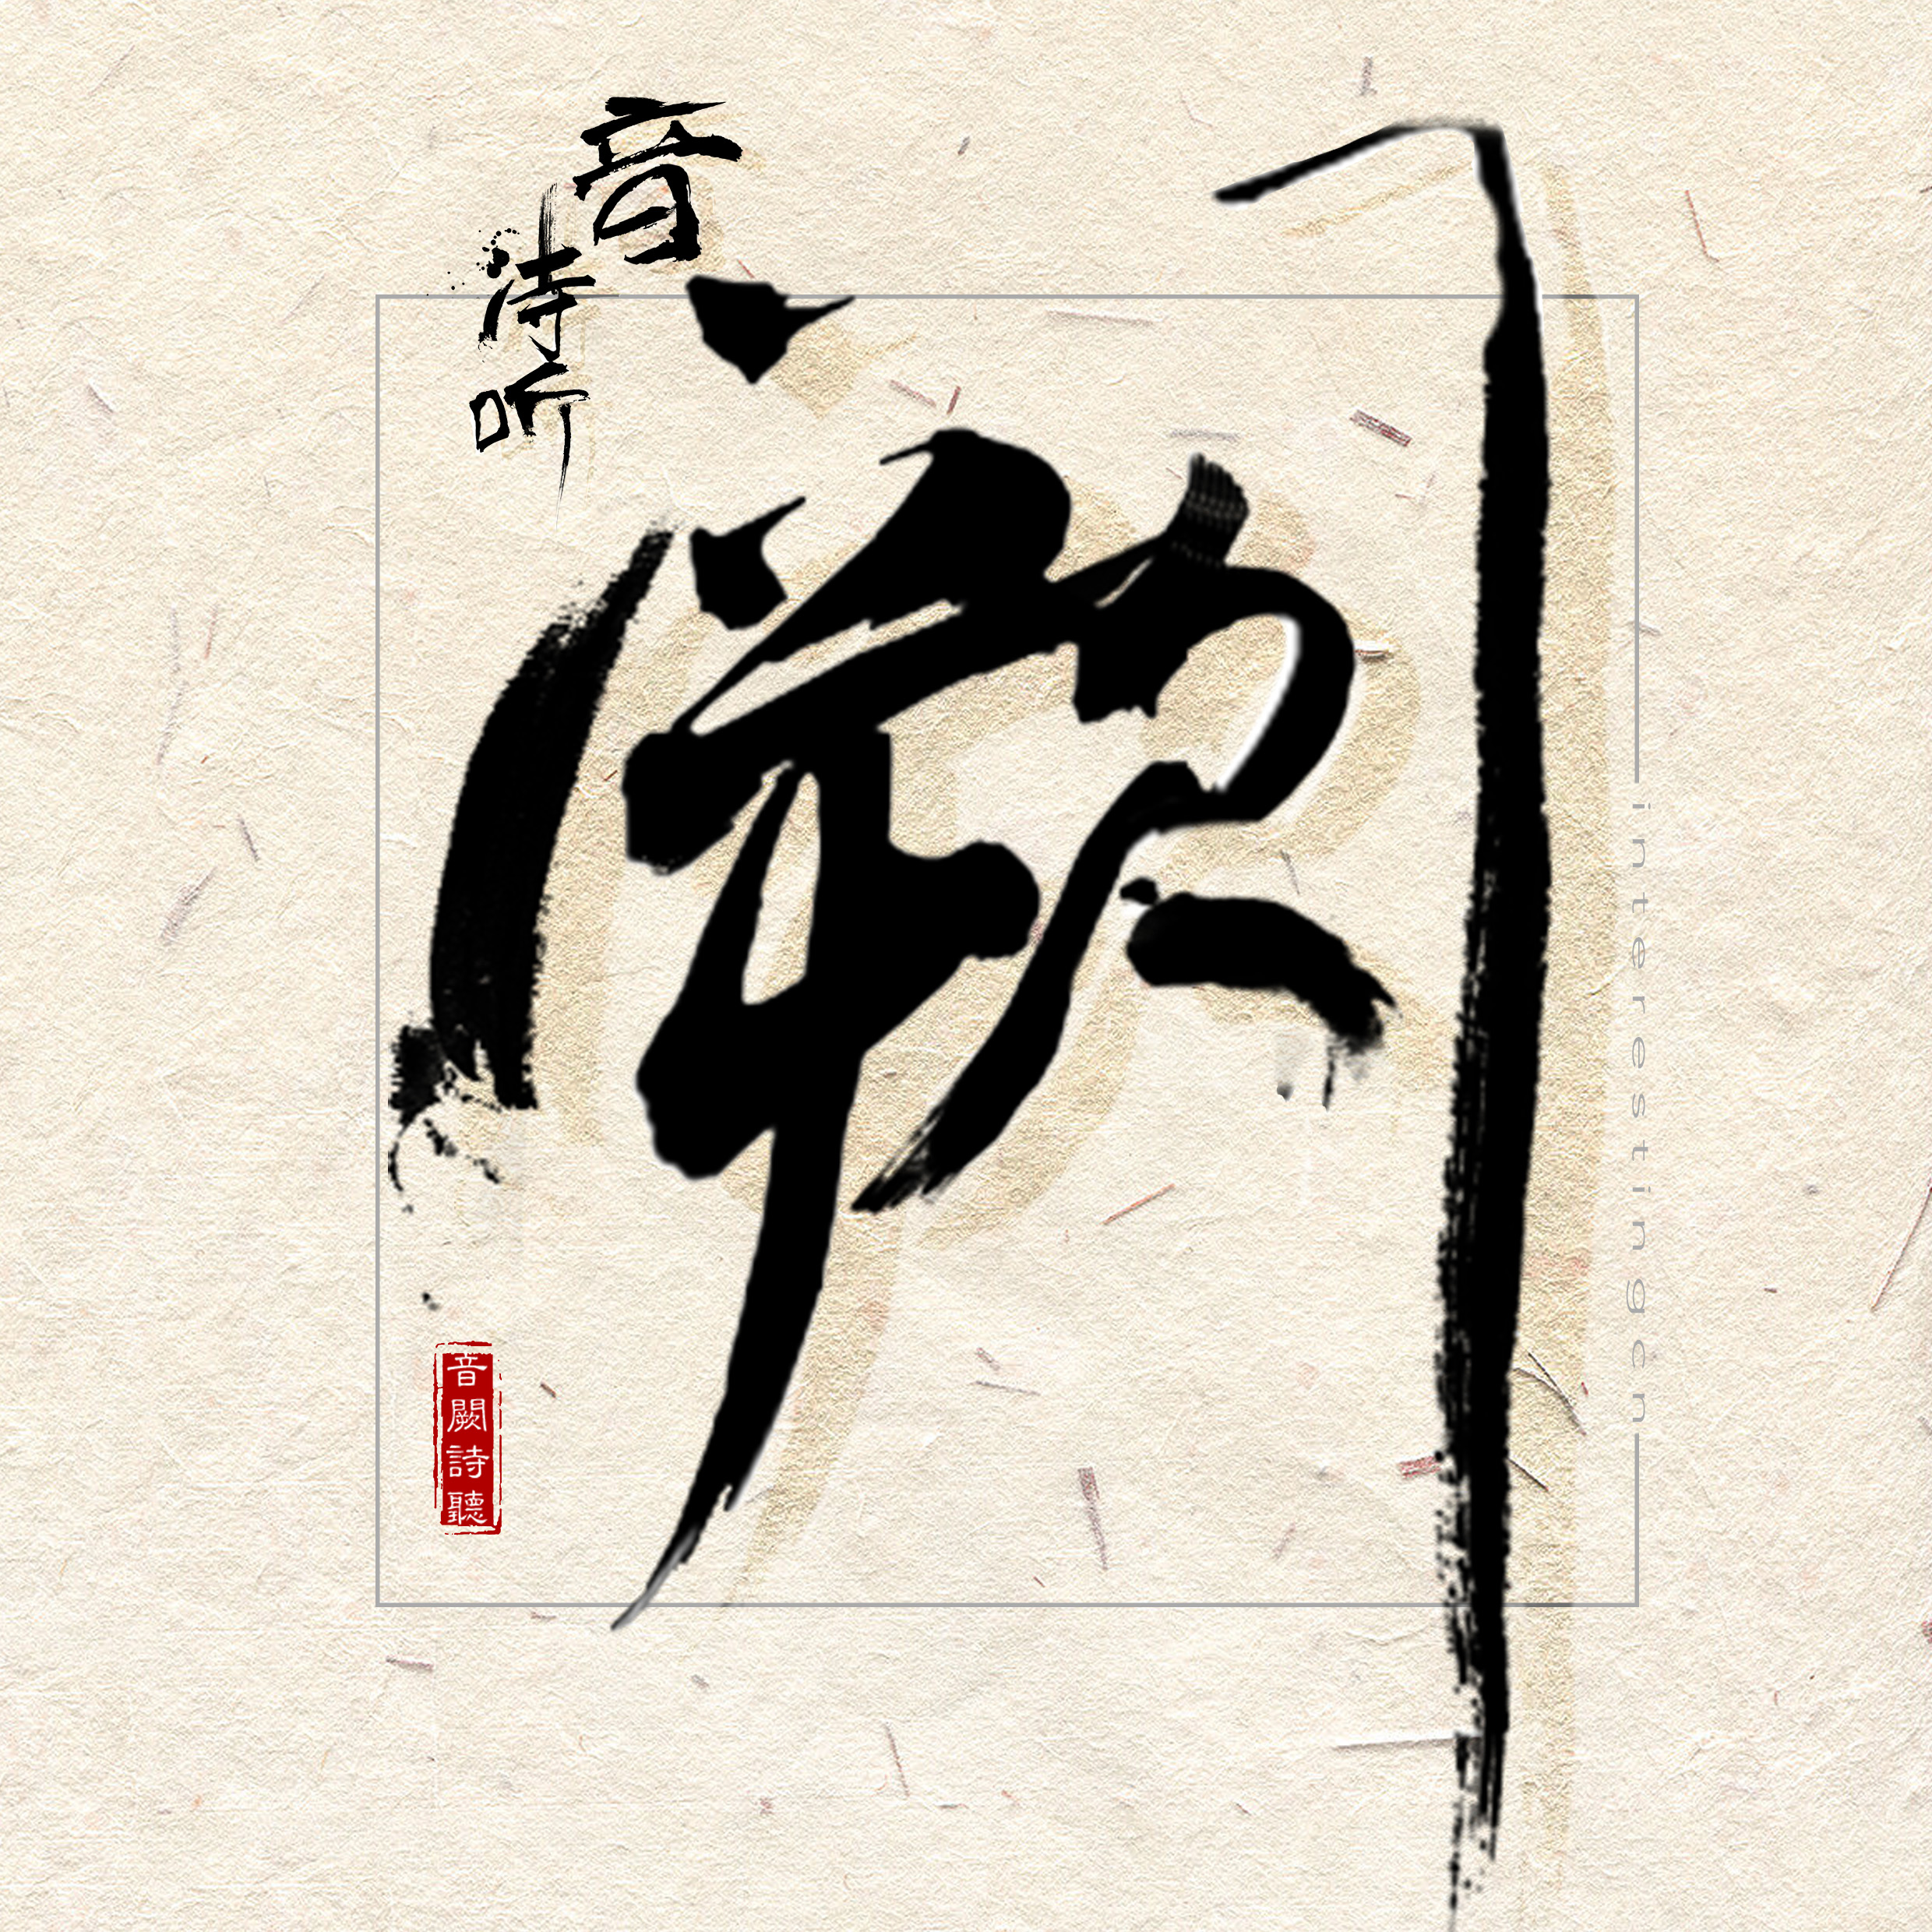 音
诗
听
阙
interestingcn
音闕詩聽